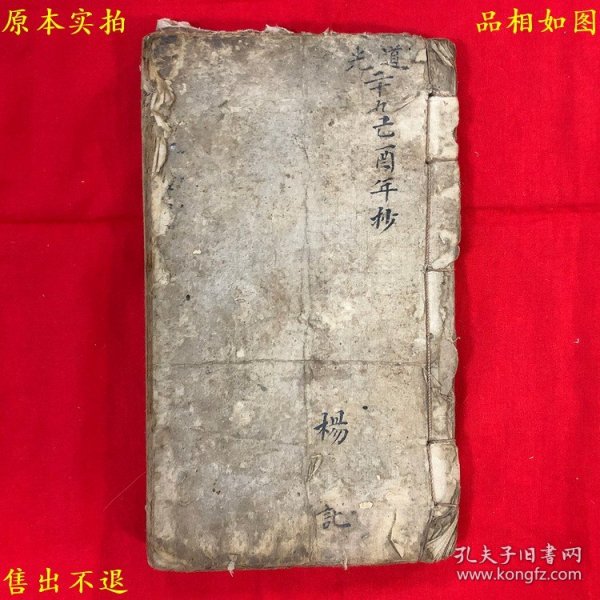 原本实拍
品相如图
道光
二十九己酉年抄
楊
記
售出不退
孔夫子旧书网
www.kongfz.com